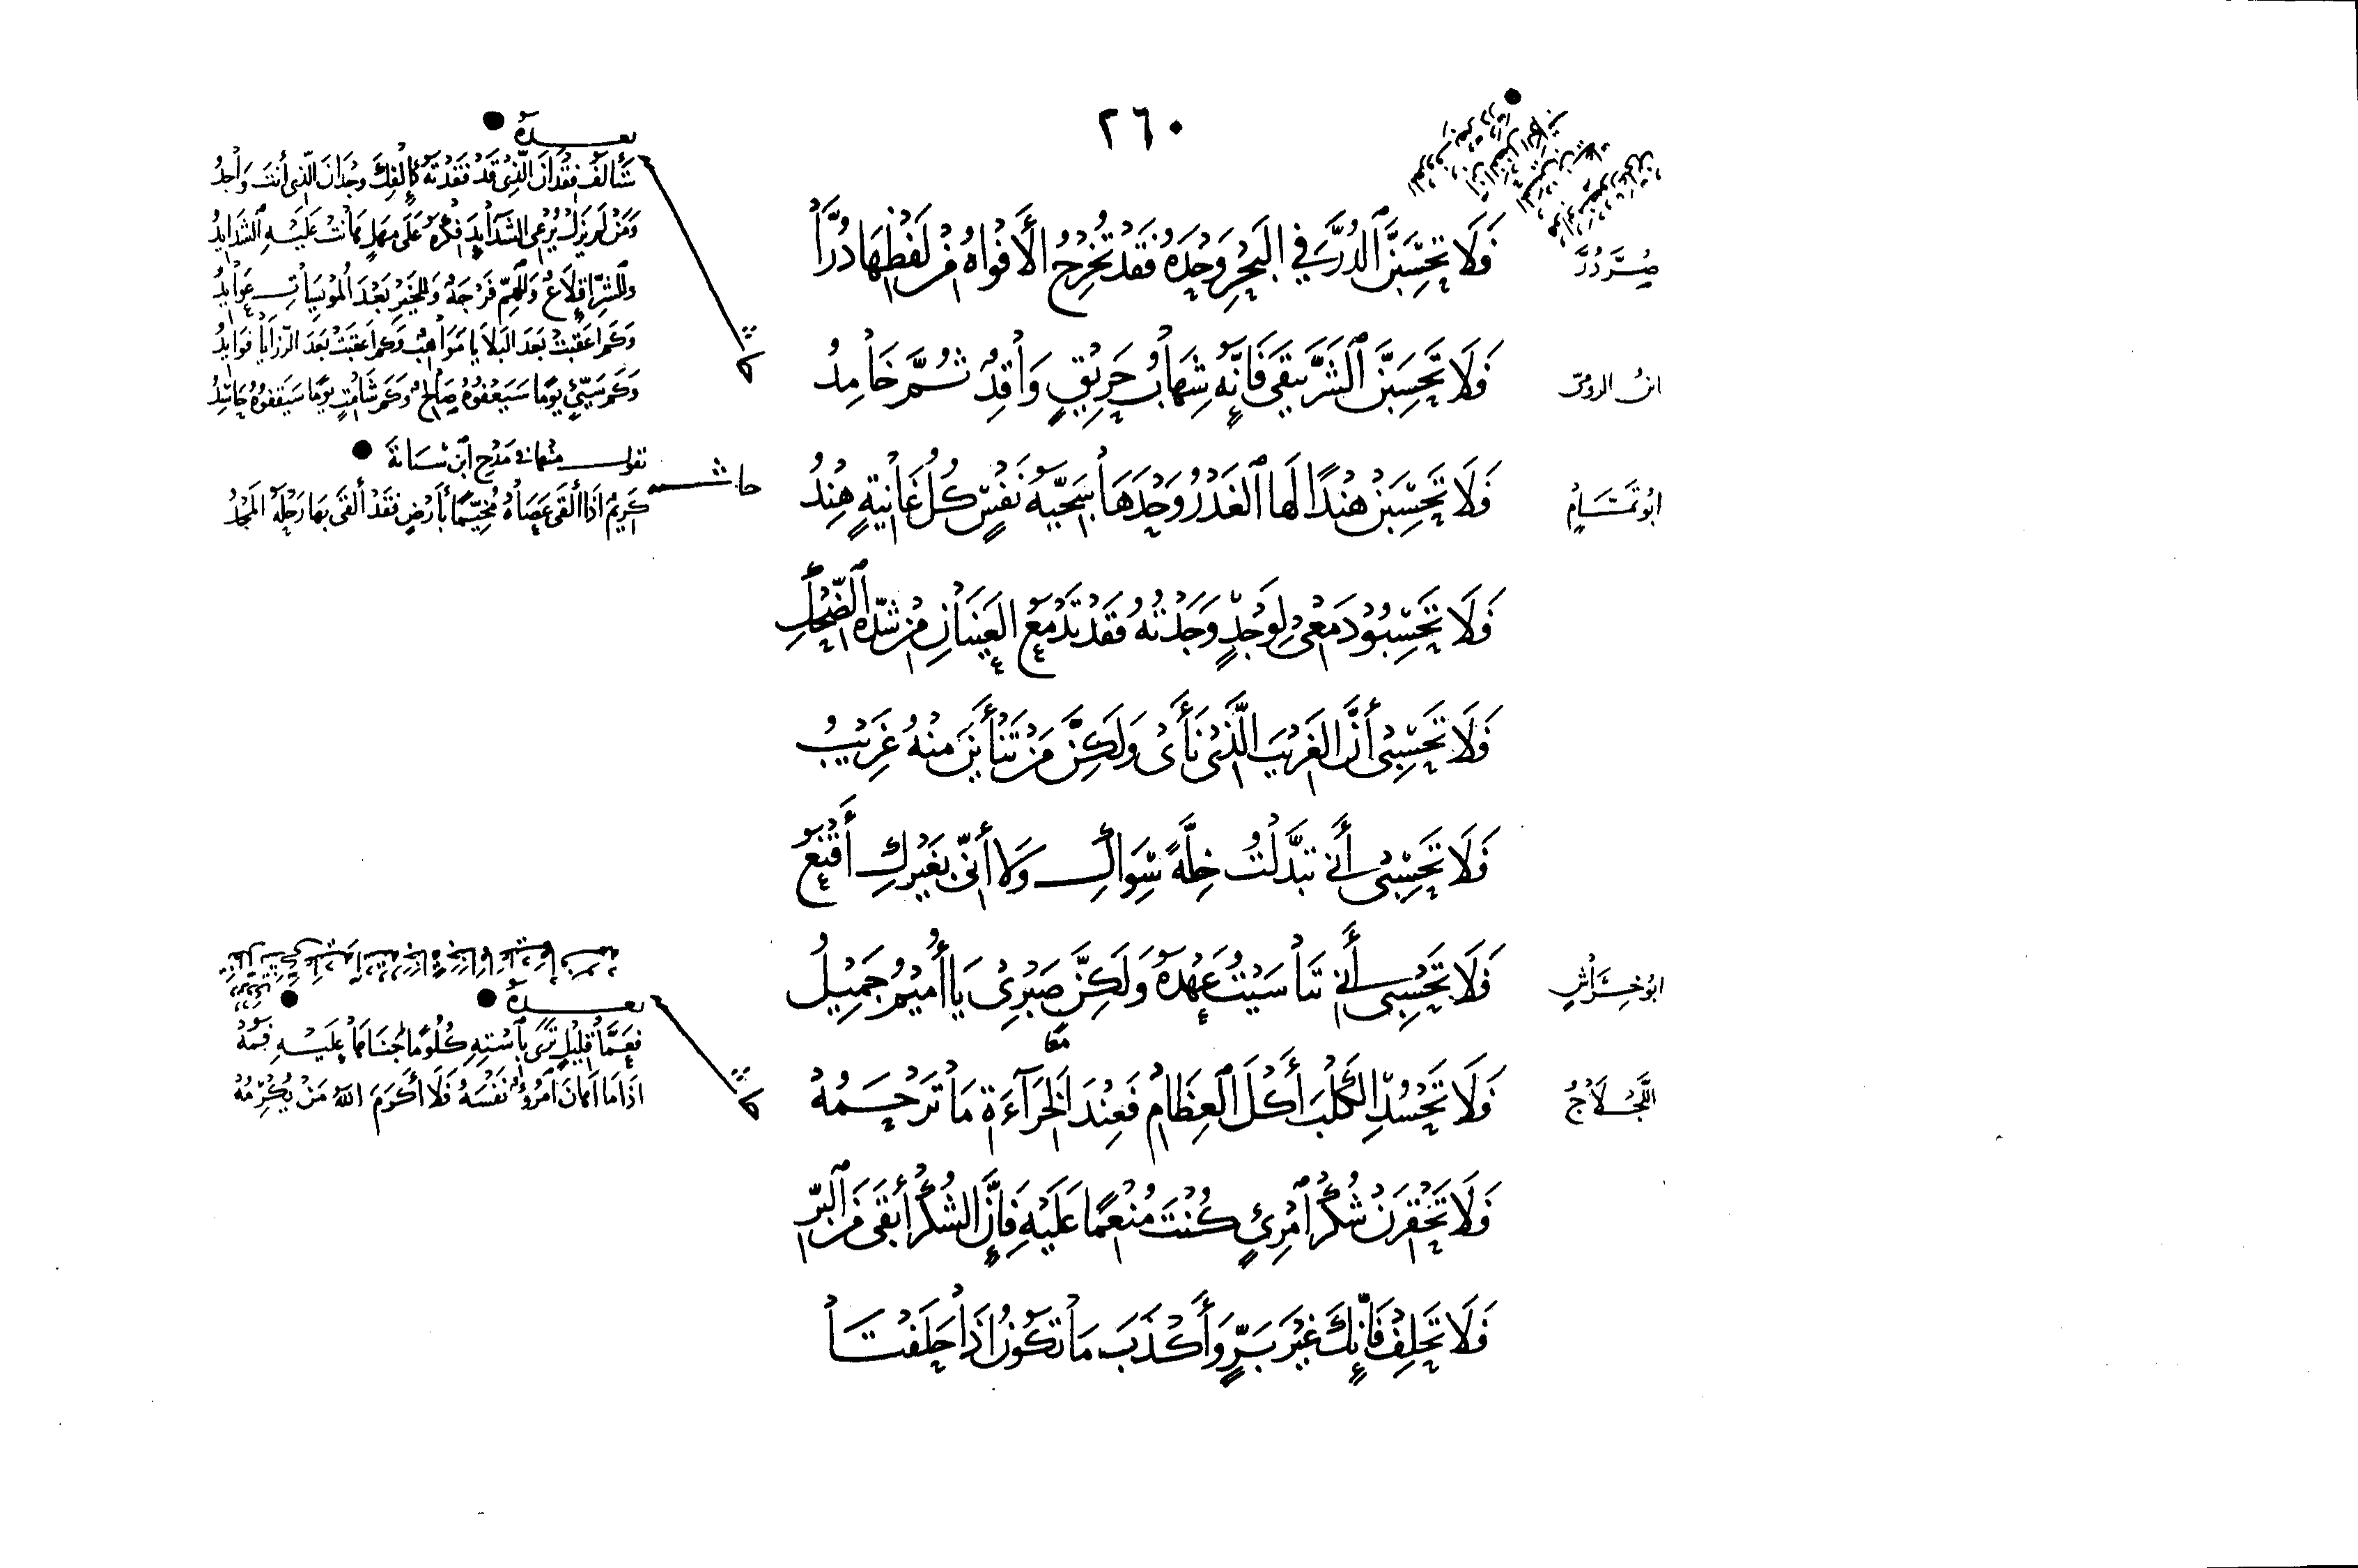 ٢٦٠
صُرَّدُرَّ
فَلَا تَحْسِبَنَّ الدُرَّ في البَحْرِ وَحْدَهُ فَقَدْ تُخْرِجُ الأَفْوَاهُ مِنْ لَفْظِهَا دُرَّاً
ابن الرومىّ
فَلَا تَحْسِبَنَّ الشَرَّ يَبْقَى فَإِنَّهُ شِهَابُ حَرِيْقٍ وَاقِدٌ ثُمَّ خَامِدُ
ابُو تمَّامٍ
فَلَا تَحْسِبَنْ هِنْدًا لَهَا الغَدْرُ وَحْدَهَا سَجيَّةُ نَفْسٍ كُلُّ غَانِيَةٍ هِنْدُ
فَلَا تَحْسِبُوْا دَمْعِىْ لِوَجْدٍ وَجَدْتُهُ فَقَدْ تَدْمَعُ العَيْنَانِ مِنْ شِدَّةِ الضَّحْكِ
فَلَا تَحْسِبِىْ أَنَّ الغَرِيْبَ الَّذِىْ نَأَىْ وَلَكِنَّ مَنْ تَنْأَيْنَ مِنْهُ غَرِيْبُ
فَلَا تَحْسِبِىْ أَنّي تبَدَّلْتُ خِلَّةً سِوَاكِ وَلَا أَنّي بِغَيْرِكِ أَقْنَعُ
ابُو خِرَاشٍ
فَلَا تَحْسِبِى أَنّي تَنَاسَيْتُ عَهْدَهُ وَلَكِنَّ صَبْرِىْ يَا أُمَيْمُ جَمِيْلُ
معًا
اللَّجْلَاجُ
فَلَا تَحْسُدِ الكَلْبَ أَكْلَ العِظَامِ فَعِنْدَ الخَرَآءَةِ مَا تَرْحَمُهْ
فَلَا تَحْقِرَنْ شُكْرَ امْرِئٍ كُنْتَ مُنْعِمًا عَلَيْهِ فَإِنَّ الشُكْرَ أَبْقَى مِنَ البِرّ
فَلَا تَحْلِفْ فَإِنَّكَ غَيْرَ بَرٍّ وَأَكْذَبَ مَا تَكُوْنُ اذَا حَلَفْتَا
بعــدهُ
سَتَأْلَفُ فِقْدَانَ الَّذِىْ قَدْ فَقَدْتَهُ كَإِلْفِكَ وِجْدَانَ الَّذِى أَنتَ وَاجدُ
وَمَنْ لَمْ يَزَلْ يُرْعِى الشَدَآيدَ فِكْرَهُ عَلَى مَهَلٍ هَانَتْ عَلَيْهِ الشَدَايدُ
وَلِلشَرّ إِقْلَاعٌ وَلِلْهَمّ فَرْجَةٌ وَللخَيْرِ بَعْدَ المُوْيِسَاتِ عَوَايدُ
وَكَمْ أَعْقَبَتْ بَعْدَ البَلَايَا مَوَاهِبٌ وَكَمْ أَعْقَبَتْ بَعْدَ الرَزَايَا فَوَايدُ
وَكَمْ سَيّئٍ يَوْمًا سَيَعْفُوْهُ صَالِحٌ وَكَمْ شَامِتٍ يَوْمًا سَيَقْفُوْهُ حَاسِدُ
حاشيـــة
يقولــ منها في مَدْح ابن شَبَانَةَ
كَرِيْمٌ اذَا أَلْقَى عَصَاهُ مُخَيّمًا بأَرْضٍ فَقَدْ أَلْقَى بهَا رَحْلَهُ المَجْدُ
بعــدهُ
فَعَمَّا قَلِيْلٍ تَرَى بِاسْتِهِ كُلُوْمًا جَنَاهَا عَلَيْهِ فَمُهْ
اذَا مَا أَهَانَ امْرُؤٌ نَفْسَهُ فَلَا أَكْرَمَ اللهُ مَنْ يُكْرِمُهْ